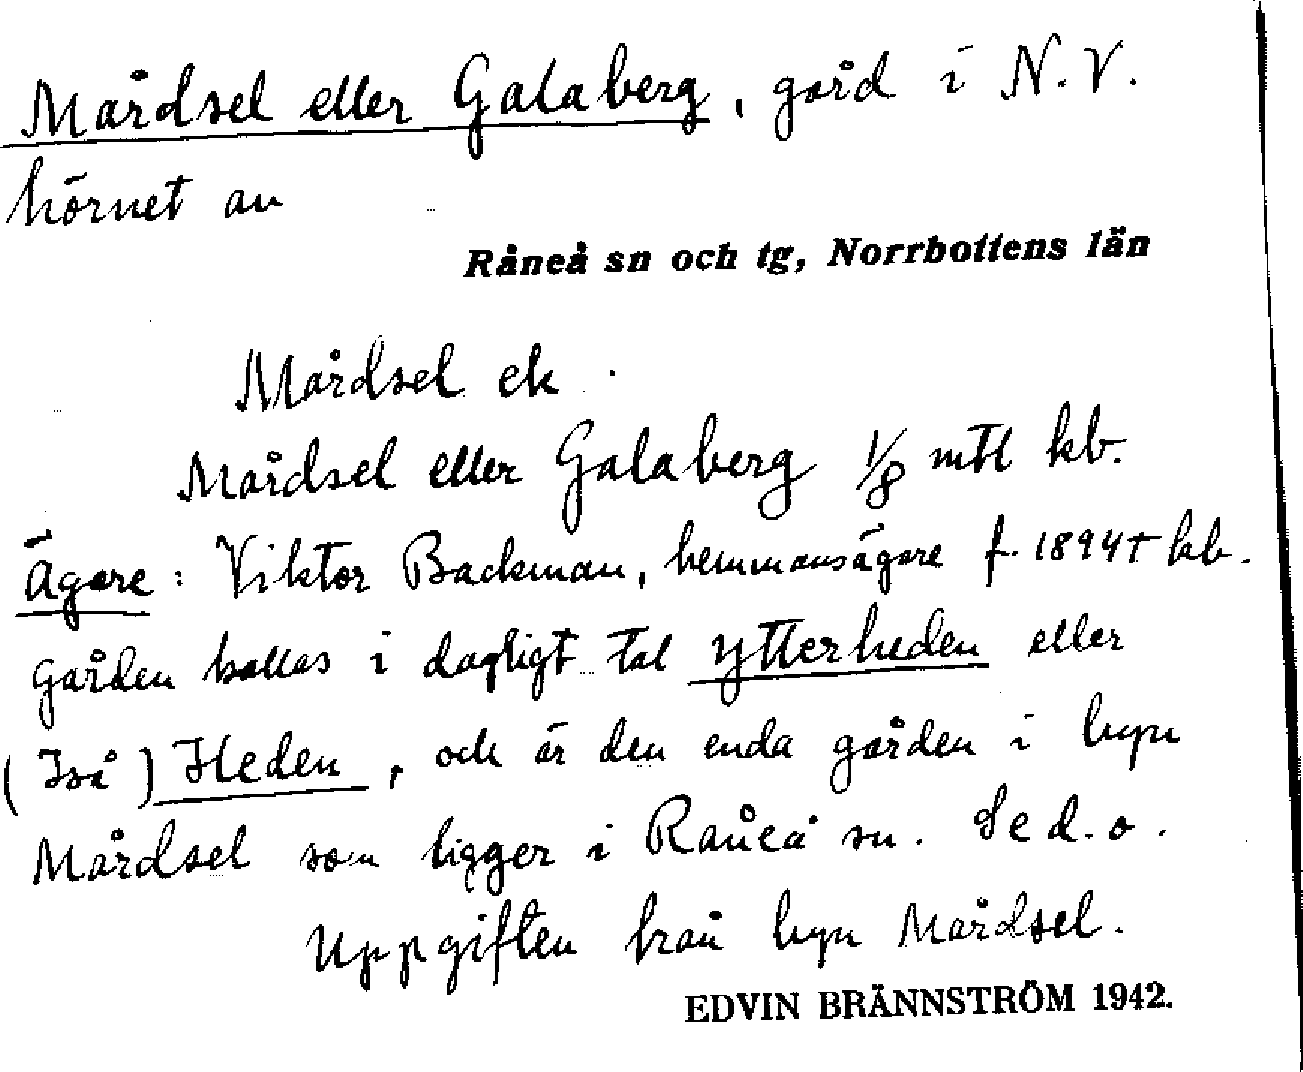 Mårdsel eller Galaberg, gård i N.V.
hörnet av
Råneå sn och tg, Norrbottens län
Mårdsel ek.
Mårdsel eller Galaberg 1/8 mtl kb.
Ägare: Viktor Backman, hemmansägare f. 1894 † kb.
Gården kallas i dagligt tal Ytterheden eller
( ) Heden, och är den enda gården i byn
Mårdsel som ligger i Råneå sn. Se d.o.
Uppgiften från byn Mårdsel.
EDVIN BRÄNNSTRÖM 1942.